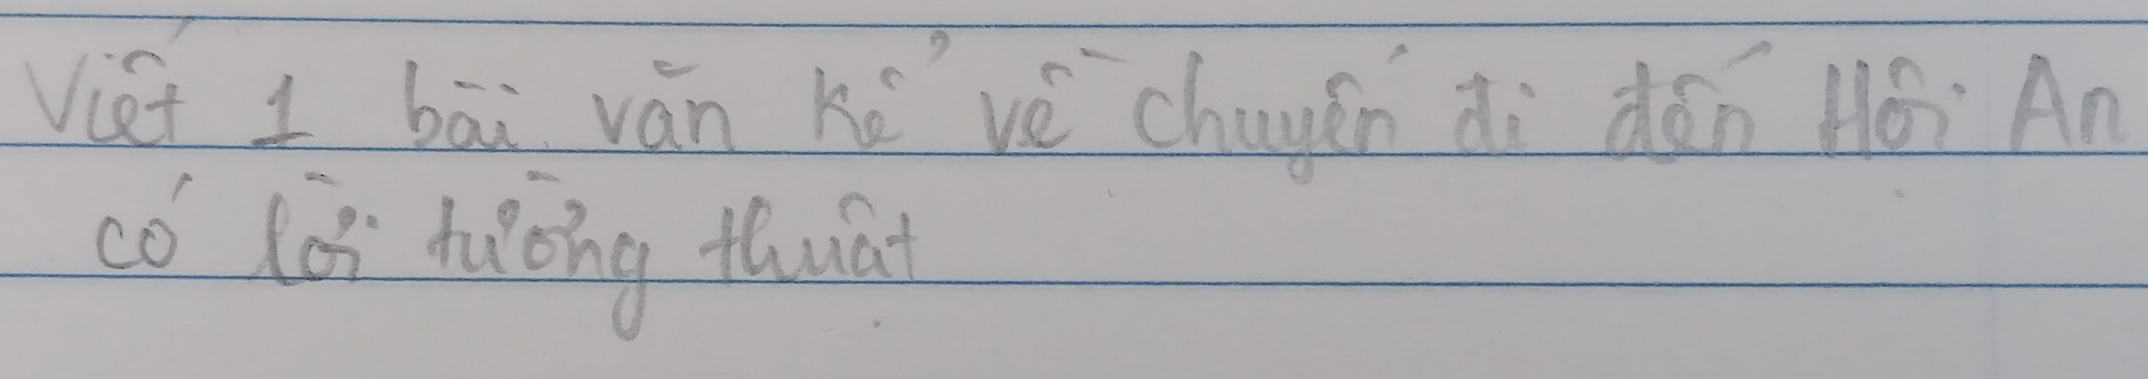 Viết 1 bài văn kể về chuyến đi đến Hội An
có lời tường thuật